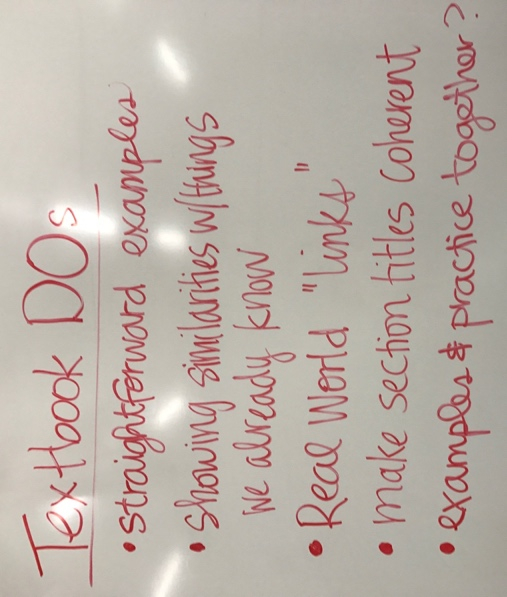 Textbook DOs
• straightforward examples
• showing similarities w/things
we already know
• Real World "Links"
• make section titles coherent
• examples & practice together?